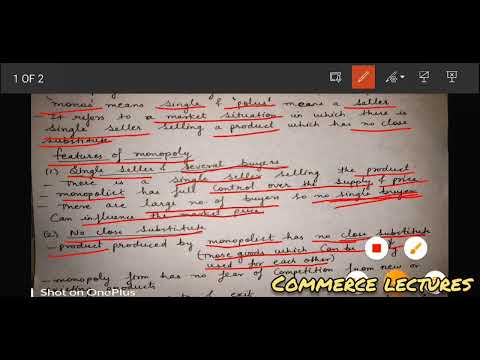 1 OF 2
'monos' means single & 'polus' means a seller
It refers to a market situation in which there is
single seller selling a product which has no close
substitute
features of monopoly
(1) Single seller & several buyers
- There is a single seller selling the product
- monopolist has full control over the supply & price
- There are large no of buyers so no single buyer
Can influence the market price
(2) No close substitute
- product produced by monopolist has no close substitute
(Those goods which can be
used for each other)
- monopoly firm has no fear of competition from new or
products
exit
Shot on OnePlus
COMMERCE LECTURES